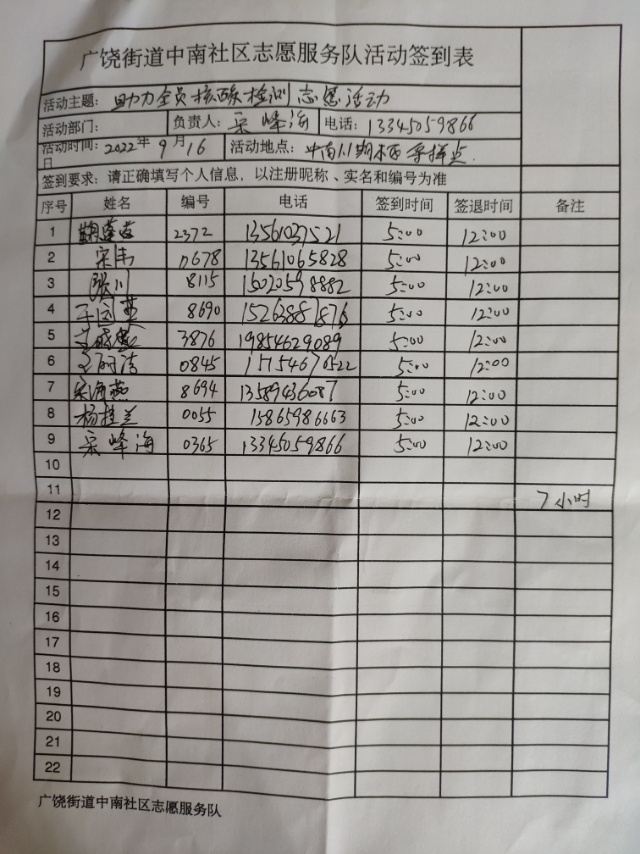 广饶街道中南社区志愿服务队活动签到表
活动主题: 助力全员核酸检测志愿活动
活动部门: 负责人: 宋峰海 电话: 13345059866
活动时间: 2022年9月16日 活动地点: 中南1.1期
签到要求: 请正确填写个人信息，以注册昵称、实名和编号为准
序号 姓名 编号 电话 签到时间 签退时间 备注
1 2372 13561037521 5:00 12:00
2 宋韦 0678 13561065828 5:00 12:00
3 张川 8115 15020598882 5:00 12:00
4 8690 15263887876 5:00 12:00
5 3876 19854629089 5:00 12:00
6 0845 17154670522 5:00 12:00
7 宋海燕 8694 13589436087 5:00 12:00
8 杨桂兰 0055 15865986663 5:00 12:00
9 宋峰海 0365 13345059866 5:00 12:00
10
11 7小时
12
13
14
15
16
17
18
19
20
21
22
广饶街道中南社区志愿服务队